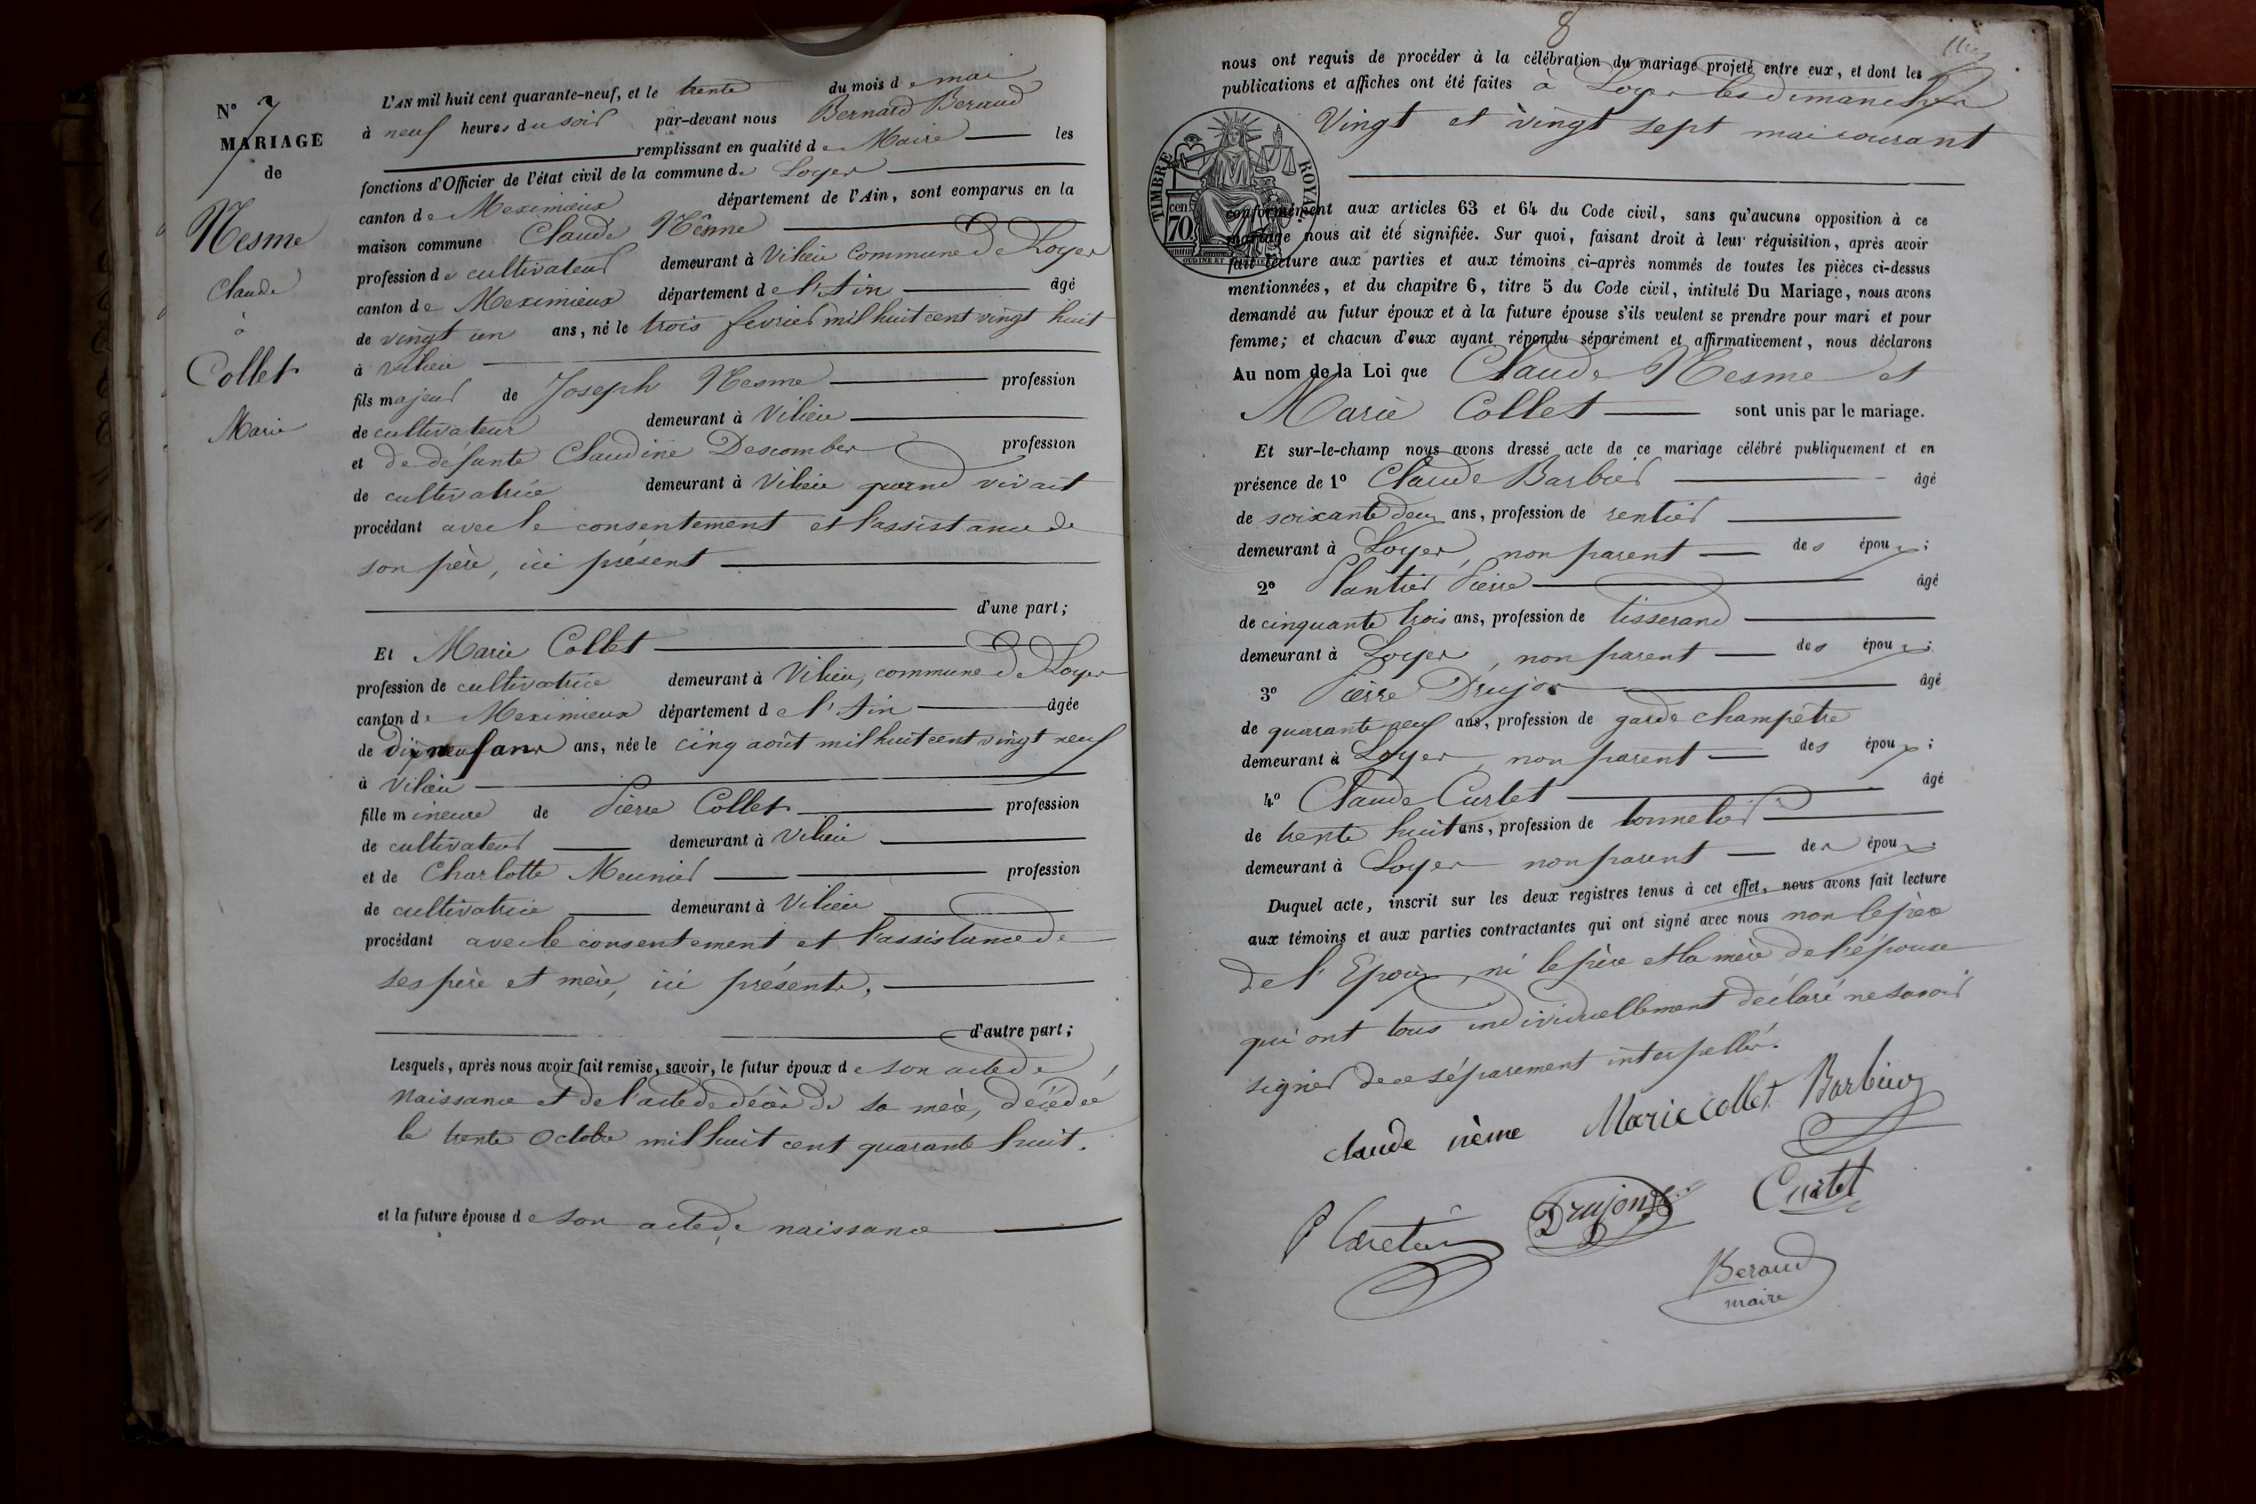 N° 7
MARIAGE
de
Nesme
Claude
à
Collet
Marie
L'AN mil huit cent quarante-neuf, et le trente du mois de mai
à neuf heures du soir par-devant nous Bernard Beraud
remplissant en qualité de Maire les
fonctions d'Officier de l'état civil de la commune de Loyes
canton de Meximieux département de l'Ain, sont comparus en la
maison commune Claude Nême
profession de cultivateur demeurant à Vilieu commune de Loyes
canton de Meximieux département de l'Ain âgé
de vingt un ans, né le trois fevrier mil huit cent vingt huit
à Vilieu
fils majeur de Joseph Nesme profession
de cultivateur demeurant à Vilieu
et de défunte Claudine Descombes profession
de cultivatrice demeurant à Vilieu quand vivait
procédant avec le consentement et l'assistance de
son père, ici présent
d'une part;
Et Marie Collet
profession de cultivatrice demeurant à Vilieu, commune de Loyes
canton de Meximieux département de l'Ain âgée
de dix neuf ans ans, née le cinq août mil huit cent vingt neuf
à Vilieu
fille mineure de Pierre Collet profession
de cultivateur demeurant à Vilieu
et de Charlotte Meunier profession
de cultivatrice demeurant à Vilieu
procédant avec le consentement et l'assistance de
ses père et mère, ici présents,
d'autre part;
Lesquels, après nous avoir fait remise, savoir, le futur époux de son acte de
naissance et de l'acte de décès de sa mère, décédée
le trente Octobre mil huit cent quarante huit.
et la future épouse de son acte de naissance
8
nous ont requis de procéder à la célébration du mariage projeté entre eux, et dont les
publications et affiches ont été faites à Loyes les dimanches
Vingt et vingt sept mai courant
TIMBRE ROYAL
cen 70
conformément aux articles 63 et 64 du Code civil, sans qu'aucune opposition à ce
mariage nous ait été signifiée. Sur quoi, faisant droit à leur réquisition, après avoir
fait lecture aux parties et aux témoins ci-après nommés de toutes les pièces ci-dessus
mentionnées, et du chapitre 6, titre 5 du Code civil, intitulé Du Mariage, nous avons
demandé au futur époux et à la future épouse s'ils veulent se prendre pour mari et pour
femme; et chacun d'eux ayant répondu séparément et affirmativement, nous déclarons
Au nom de la Loi que Claude Nesme et
Marie Collet sont unis par le mariage.
Et sur-le-champ nous avons dressé acte de ce mariage célébré publiquement et en
présence de 1° Claude Barbier âgé
de soixante deux ans, profession de rentier
demeurant à Loyes, non parent des époux;
2° Plantier Pierre âgé
de cinquante trois ans, profession de tisserand
demeurant à Loyes, non parent des époux;
3° Pierre Drujon âgé
de quarante neuf ans, profession de garde champêtre
demeurant à Loyes, non parent des époux;
4° Claude Curtet âgé
de trente huit ans, profession de tonnelier
demeurant à Loyes non parent des époux.
Duquel acte, inscrit sur les deux registres tenus à cet effet, nous avons fait lecture
aux témoins et aux parties contractantes qui ont signé avec nous non le père
de l'Epoux, ni le père et la mère de l'épouse
qui ont tous individuellement déclaré ne savoir
signer de ce séparement interpellés.
claude nème Marie collet Barbier
Drujon Curtet
Beraud
maire